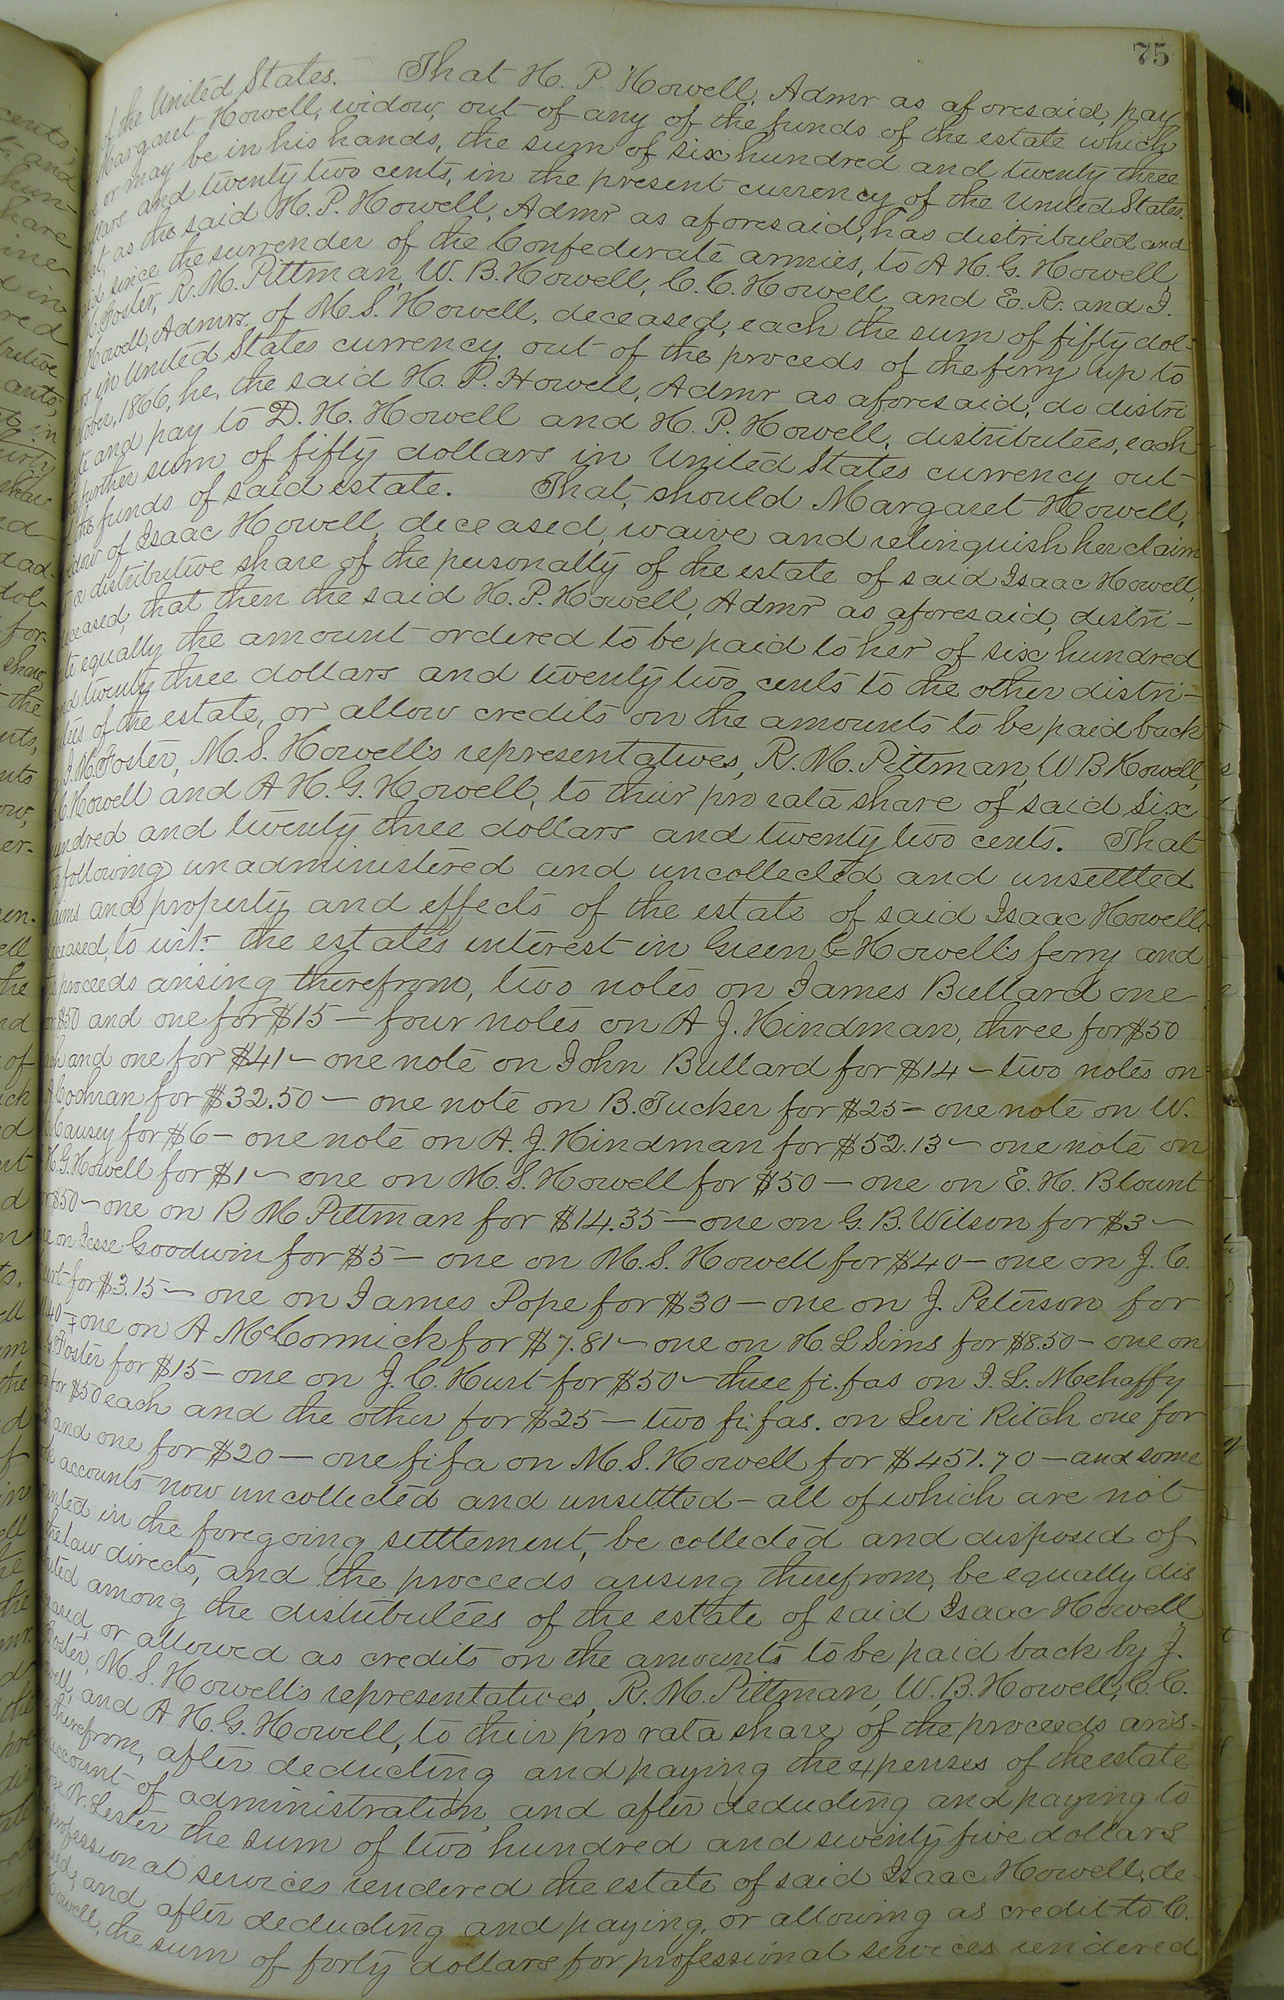 75
the United States. That H. P. Howell, Admr as aforesaid, pay
Margaret Howell, widow, out of any of the funds of the estate which
or may be in his hands, the sum of six hundred and twenty three
and twenty two cents, in the present currency of the United States.
as the said H. P. Howell, Admr as aforesaid, has distributed and
since the surrender of the Confederate armies, to A H. G. Howell,
Foster, R. M. Pittman, W. B. Howell, C. C. Howell, and E. R. and J.
Howell, Admrs. of M. S. Howell, deceased, each the sum of fifty dol-
in United States currency out of the proceeds of the ferry up to
1866, he, the said H. P. Howell, Admr as aforesaid, do distri
and pay to D. H. Howell and H. P. Howell, distributees, each
further sum of fifty dollars in United States currency out
the funds of said estate. That, should Margaret Howell,
of Isaac Howell, deceased, waive and relinquish her claim
a distributive share of the personalty of the estate of said Isaac Howell,
that then the said H. P. Howell, Admr as aforesaid, distri-
equally the amount ordered to be paid to her of six hundred
twenty three dollars and twenty two cents to the other distri-
of the estate, or allow credits on the amounts to be paid back
J. M. Foster, M. S. Howell's representatives, R. M. Pittman, W B Howell,
Howell and A H. G. Howell, to their pro rata share of said Six
and twenty three dollars and twenty two cents. That
following unadministered and uncollected and unsettled
and property and effects of the estate of said Isaac Howell,
to wit:- the estate's interest in Green & Howell's ferry and
proceeds arising therefrom, two notes on James Bullard one
$50 and one for $15 — four notes on A J. Hindman, three for $50
and one for $41 — one note on John Bullard for $14 — two notes on
Cochran for $32.50 — one note on B. Tucker for $25 — one note on W.
Causey for $6 — one note on A. J. Hindman for $52.13 — one note on
H. G. Howell for $1 — one on M. S. Howell for $50 — one on E. H. Blount
$50 — one on R M Pittman for $14.35 — one on G. B. Wilson for $3 —
on Jesse Goodwin for $5 — one on M. S. Howell for $40 — one on J. C.
for $3.15 — one on James Pope for $30 — one on J. Peterson for
one on A McCormick for $7.81 — one on H. L Sims for $8.50 — one on
Foster for $15 — one on J. C. Hurt for $50 — three fi. fas on J. L. Mehaffy
for $50 each and the other for $25 — two fi. fas. on Levi Ritch one for
and one for $20 — one fi fa on M. S. Howell for $451.70 — and some
accounts now uncollected and unsettled — all of which are not
in the foregoing settlement, be collected and disposed of
the law directs, and the proceeds arising therefrom, be equally dis
among the distributees of the estate of said Isaac Howell
or allowed as credits on the amounts to be paid back by J.
Foster, M. S. Howell's representatives, R. M. Pittman, W. B. Howell, C. C.
and A H. G. Howell, to their pro rata share of the proceeds aris-
therefrom, after deducting and paying the expenses of the estate
account of administration, and after deducting and paying to
N. Lester the sum of two hundred and seventy five dollars
professional services rendered the estate of said Isaac Howell, de-
and after deducting and paying, or allowing as credit to C.
Howell, the sum of forty dollars for professional services rendered